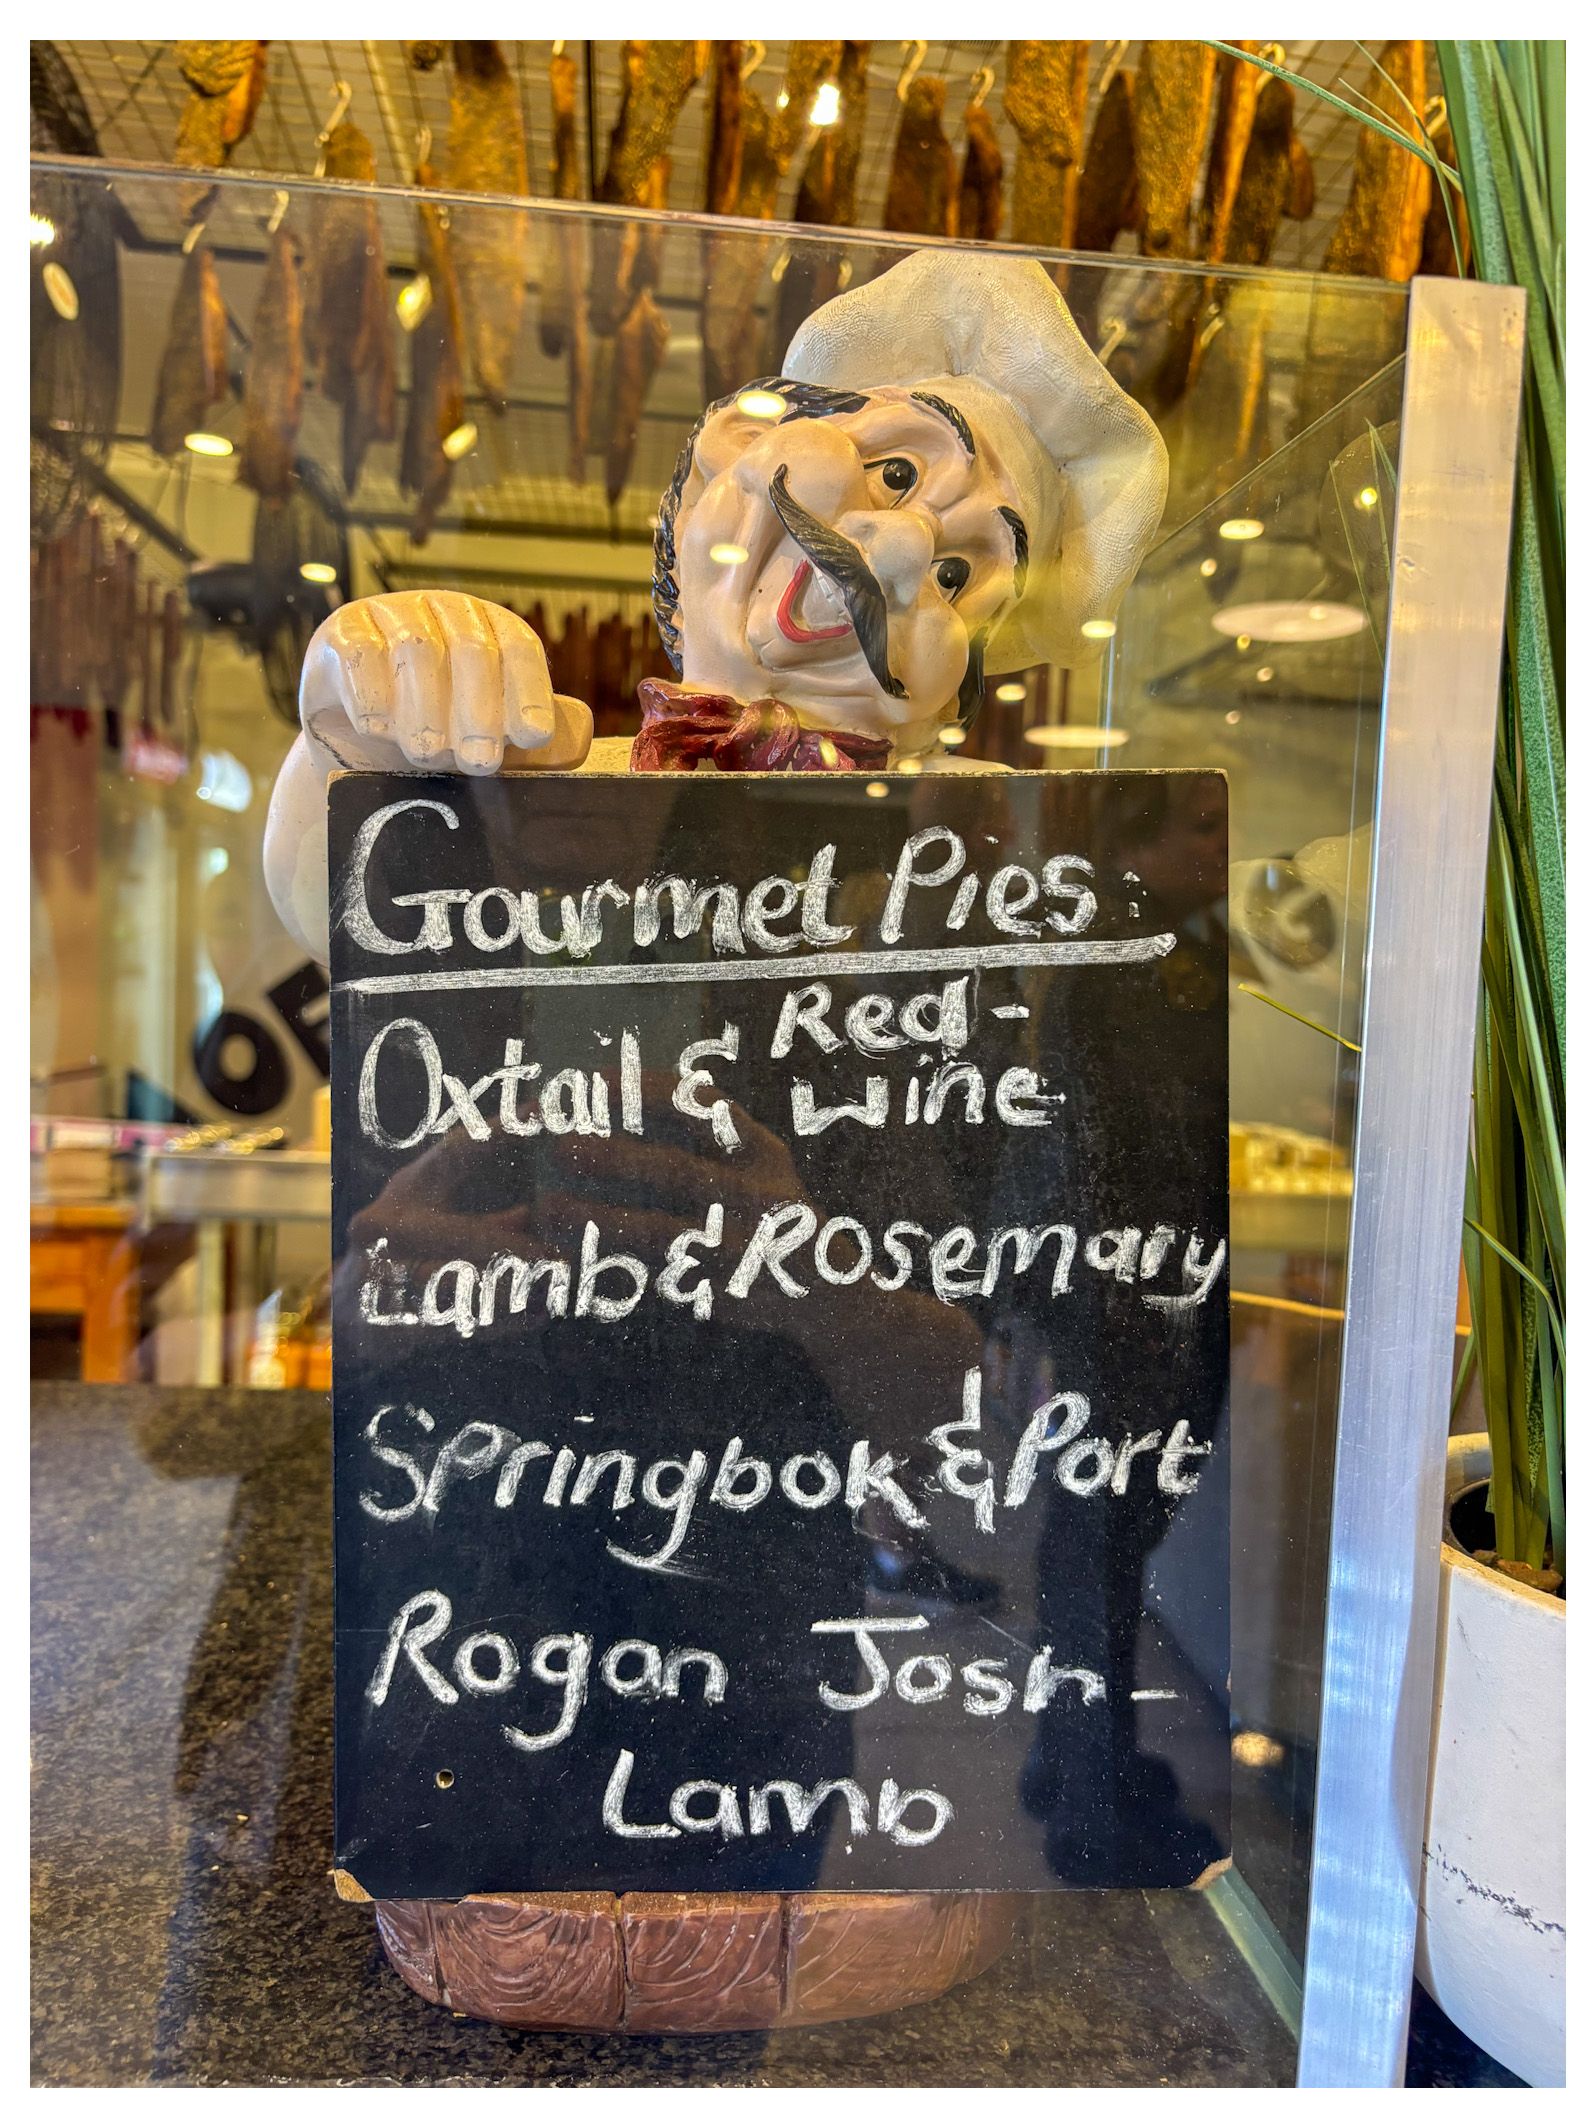 Gourmet Pies:
Oxtail & Red-
wine
Lamb & Rosemary
Springbok & Port
Rogan Josh -
Lamb